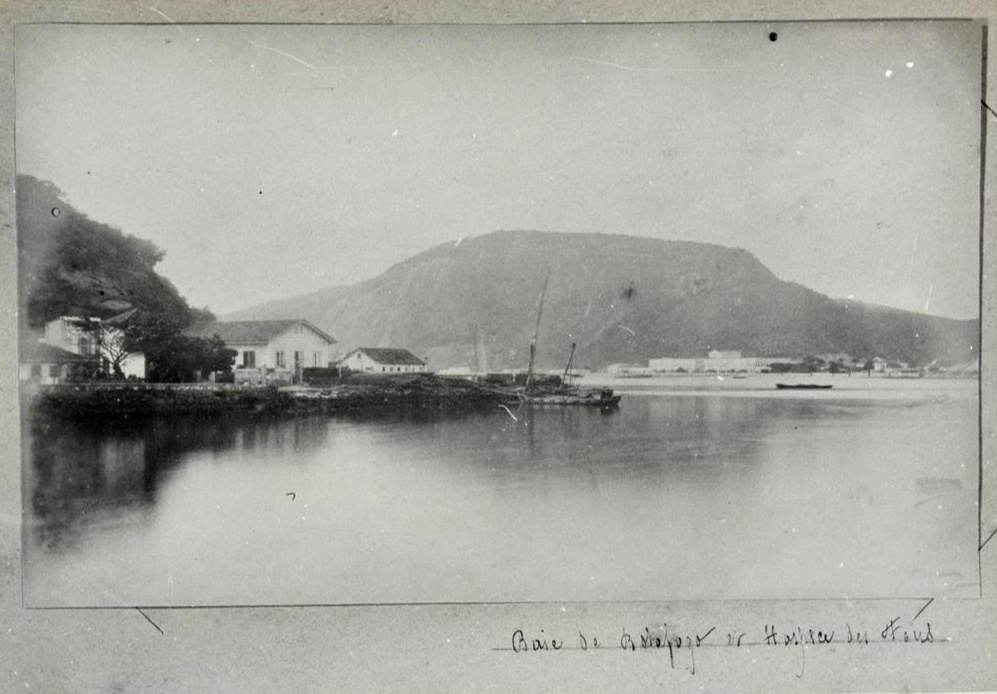 Baie de Botafogo et Hospice des Fous